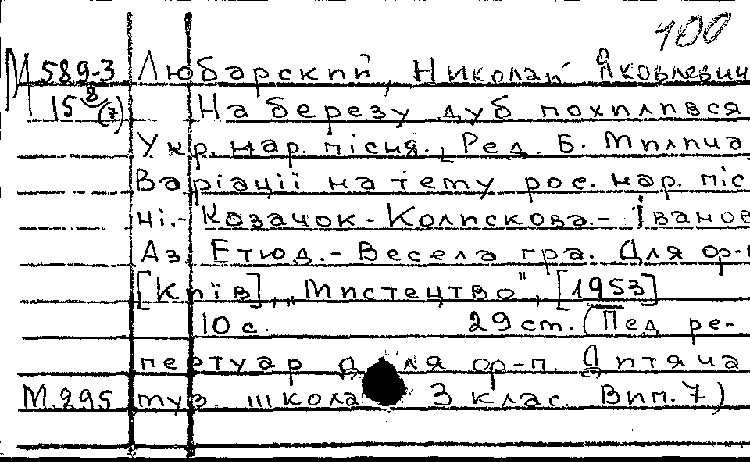 100
М 589-3 Любарский, Николай Яковлевич
15 8/(7) На березу дуб похилився
Укр. нар. пісня. [Ред. Б. Милича
Варіації на тему рос. нар. піс
ні.- Козачок-Колискова.- Іванов
Аз. Етюд.- Весела гра. Для ор-п
[Київ], „Мистецтво", [1953]
10 с. 29 cm. (Пед ре-
пертуар для ор-п. Дитяча
М.295 муз. школа 3 клас. Вип. 7)